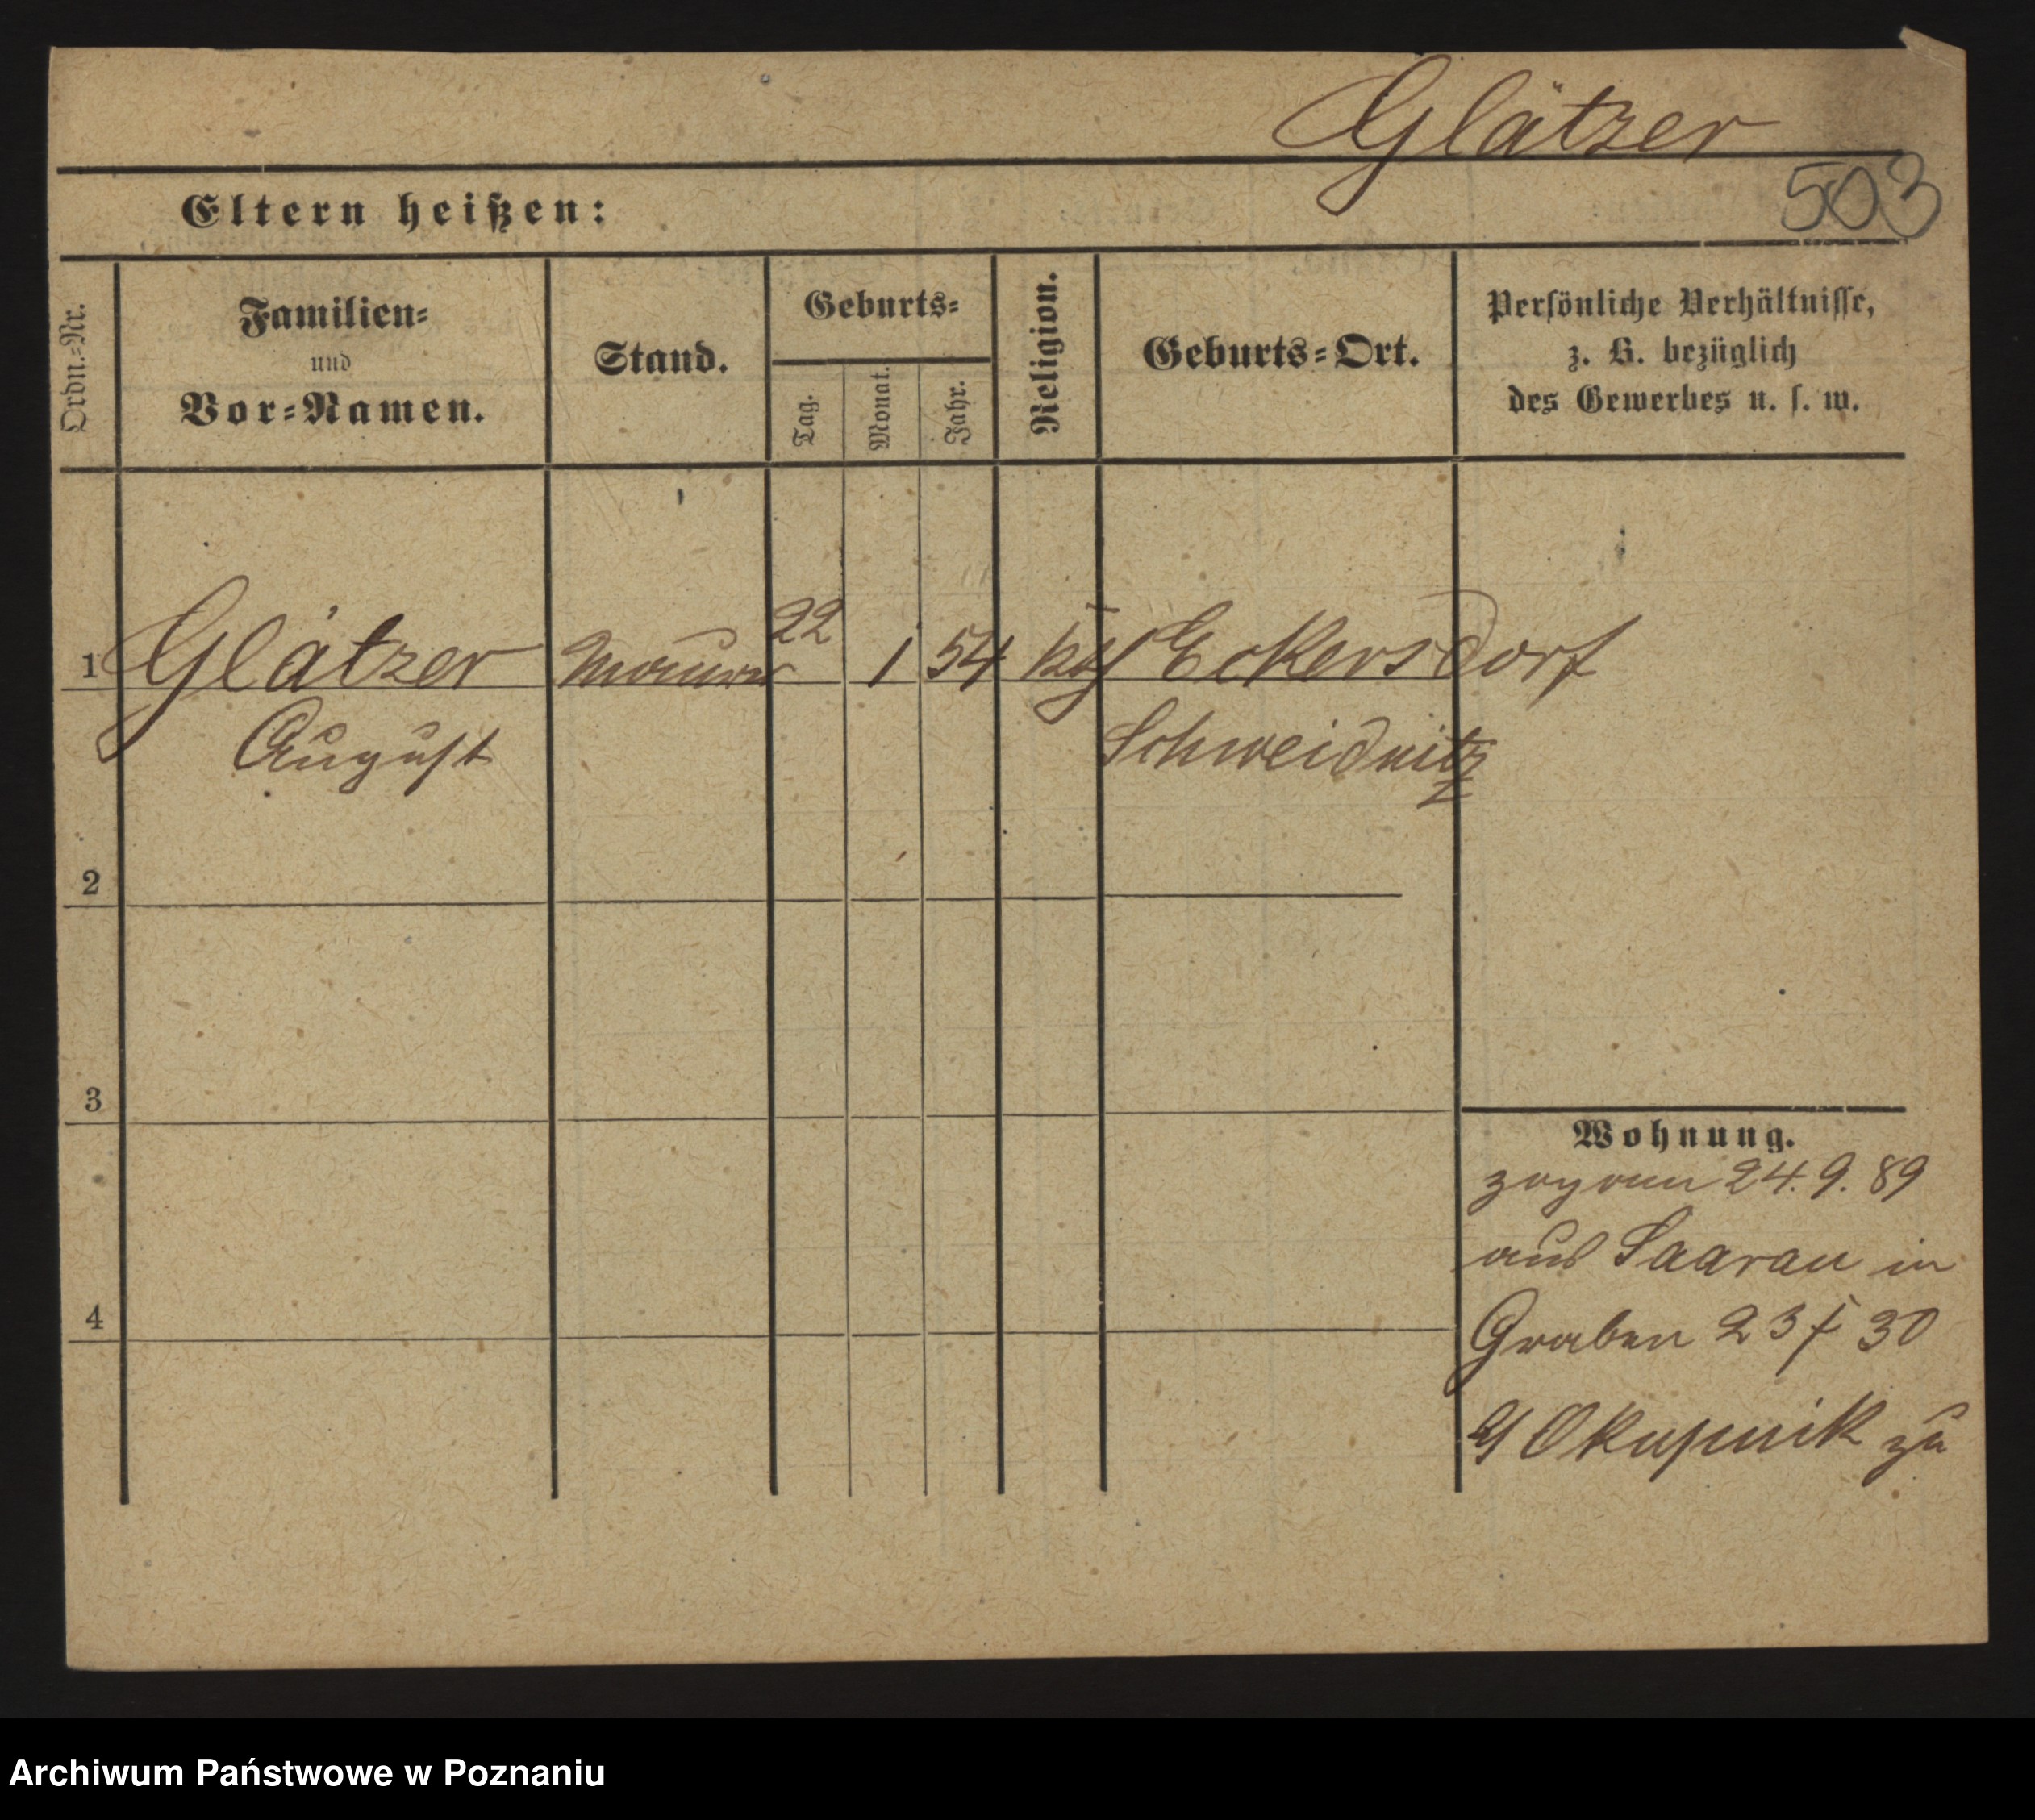 Glätzer
503
Eltern heißen:
Ordn.-Nr.
Familien-
und
Vor-Namen.
Stand.
Geburts-
Tag.
Monat.
Jahr.
Religion.
Geburts-Ort.
Persönliche Verhältnisse,
z. B. bezüglich
des Gewerbes u. s. w.
1 Glätzer Maurer 22 1 54 Eckersdorf
August Schweidnitz
2
3
4
Wohnung.
zog am 24.9.89
aus Saarau in
Graben 23 30
Okupnik zu
Archiwum Państwowe w Poznaniu